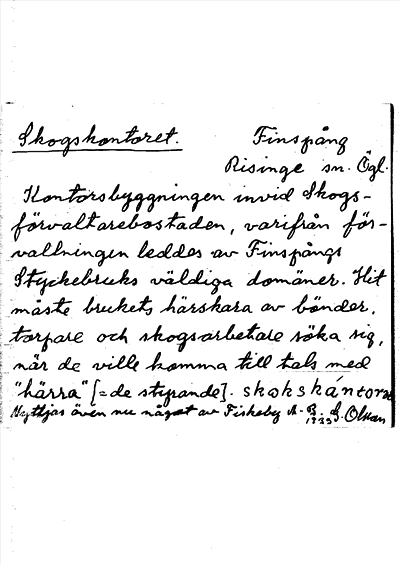 Skogskontoret. Finspång
Risinge sn. Ögl.
Kontorsbyggningen invid Skogs-
förvaltarebostaden, varifrån för-
valtningen leddes av Finspångs
Styckebruks väldiga domäner. Hit
måste brukets härskara av bönder,
torpare och skogsarbetare söka sig,
när de ville komma till tals med
"härra" [= de styrande]. skokskántore
Nyttjas även nu något av Fiskeby A.-B. G. Olsson
1933